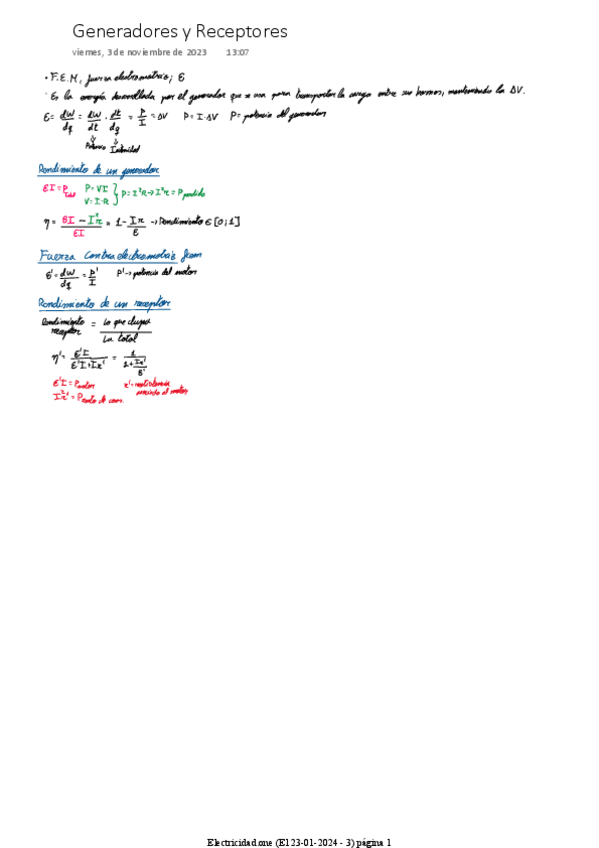 Generadores y Receptores
viernes, 3 de noviembre de 2023 13:07
• F.E.M, fuerza electromotriz; ε
· Es la energía desarrollada por el generador que se usa para transportar la carga entre sus bornes, manteniendo la ΔV.
ε = dW/dq = dW/dt · dt/dq = P/I = ΔV P = I·ΔV P = potencia del generador
Potencia Intensidad
Rendimiento de un generador
εI = P total P = VI V = I·R } P = I²R → I²r = P perdida
η = (εI − I²r)/εI = 1 − Ir/ε → Rendimiento ∈ [0;1]
Fuerza Contraelectromotriz fcem
ε' = dW/dq = P'/I P' → potencia del motor
Rendimiento de un receptor
Rendimiento receptor = Lo que chupa / La total
η' = ε'I/(ε'I + I²r') = 1/(1 + Ir'/ε')
ε'I = P motor r' = resistencia
I²r' = P del motor